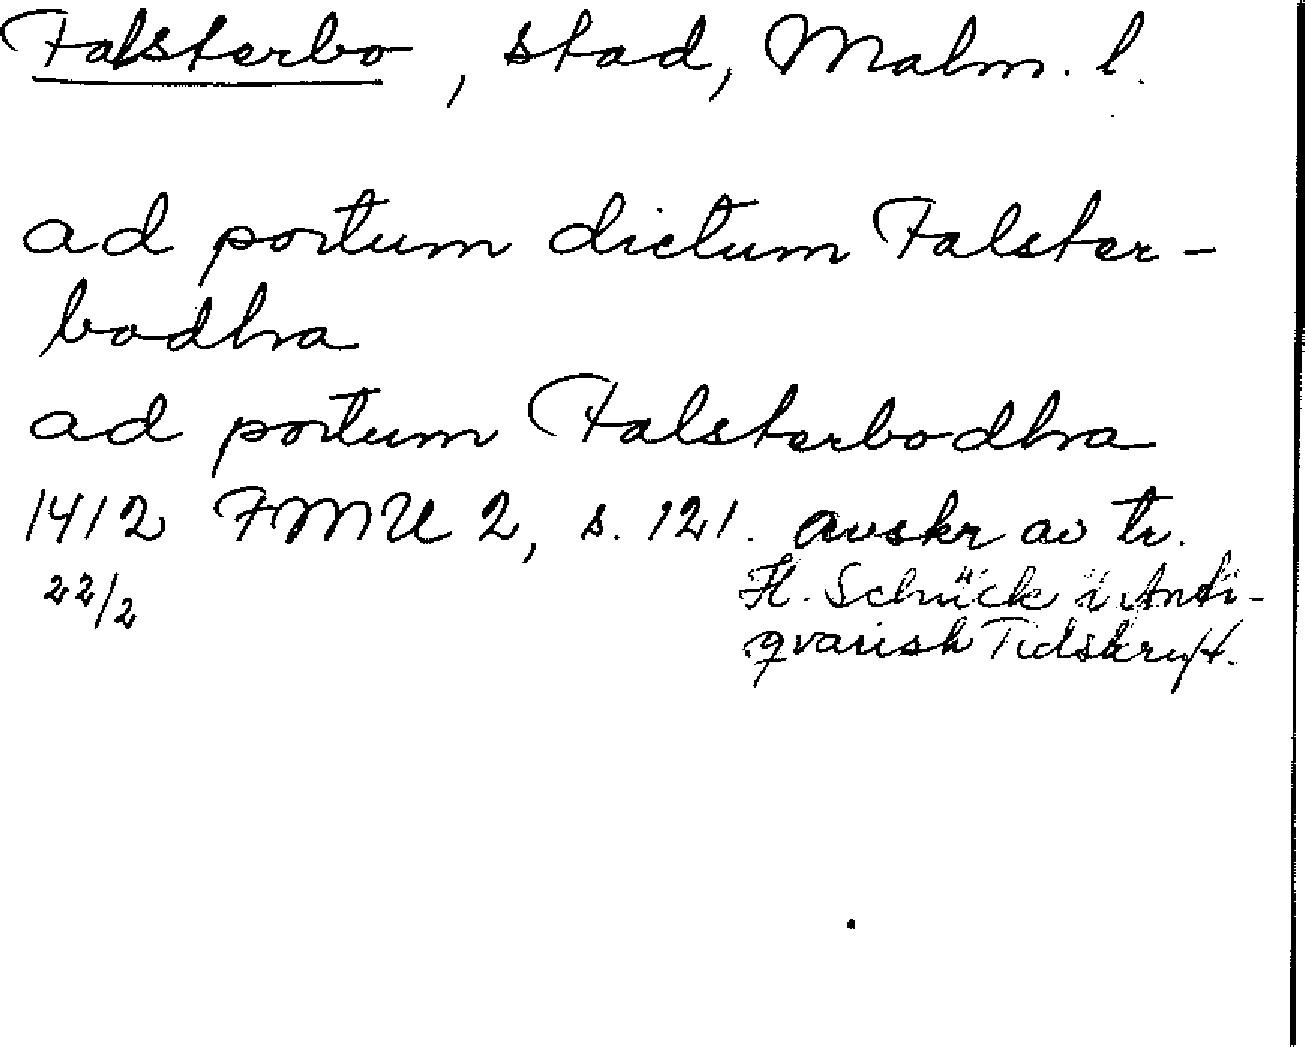 Falsterbo, stad, Malm. l.
ad portum dictum Falster-
bodhra
ad portum Falsterbodhra
1412 FMU 2, s. 121. avskr av tr.
22/2 H. Schück i Anti-
qvarisk Tidskrift.